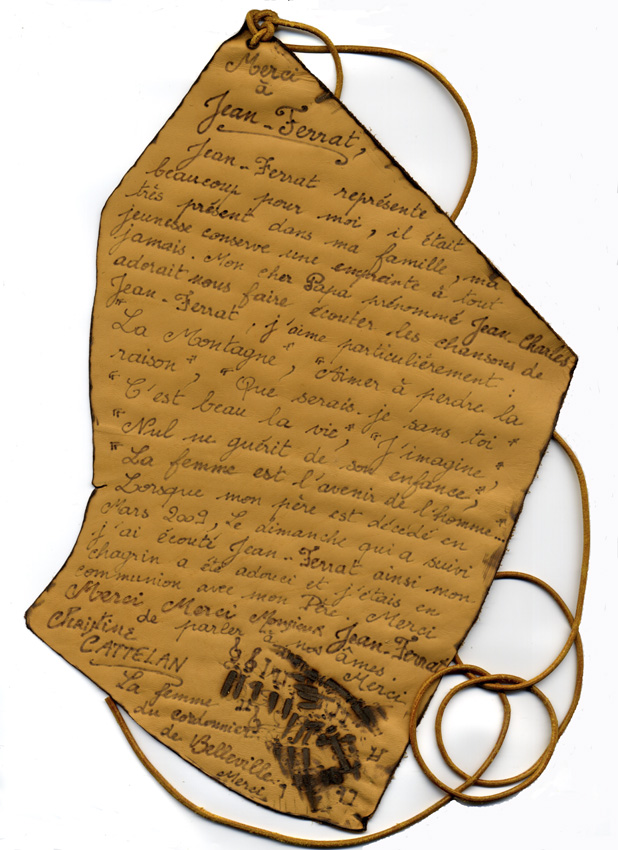 Merci
à
Jean-Ferrat,
Jean-Ferrat représente
beaucoup pour moi, il était
très présent dans ma famille, ma
jeunesse conserve une empreinte à tout
jamais. Mon cher Papa prénommé Jean-Charles
adorait nous faire écouter les chansons de
Jean-Ferrat. j'aime particulièrement :
"La Montagne", "Aimer à perdre la
raison", "Que serais-je sans toi"
"C'est beau la vie", "j'imagine",
"Nul ne guérit de son enfance",
"La femme est l'avenir de l'homme"...
Lorsque mon père est décédé en
Mars 2009, Le dimanche qui a suivi
j'ai écouté Jean-Ferrat ainsi mon
chagrin a été adouci et j'étais en
communion avec mon Père. Merci
Merci, Merci Monsieur Jean-Ferrat
de parler à nos âmes.
Merci.
Christine
CATTELAN
La femme
du cordonnier
de Belleville.
Merci